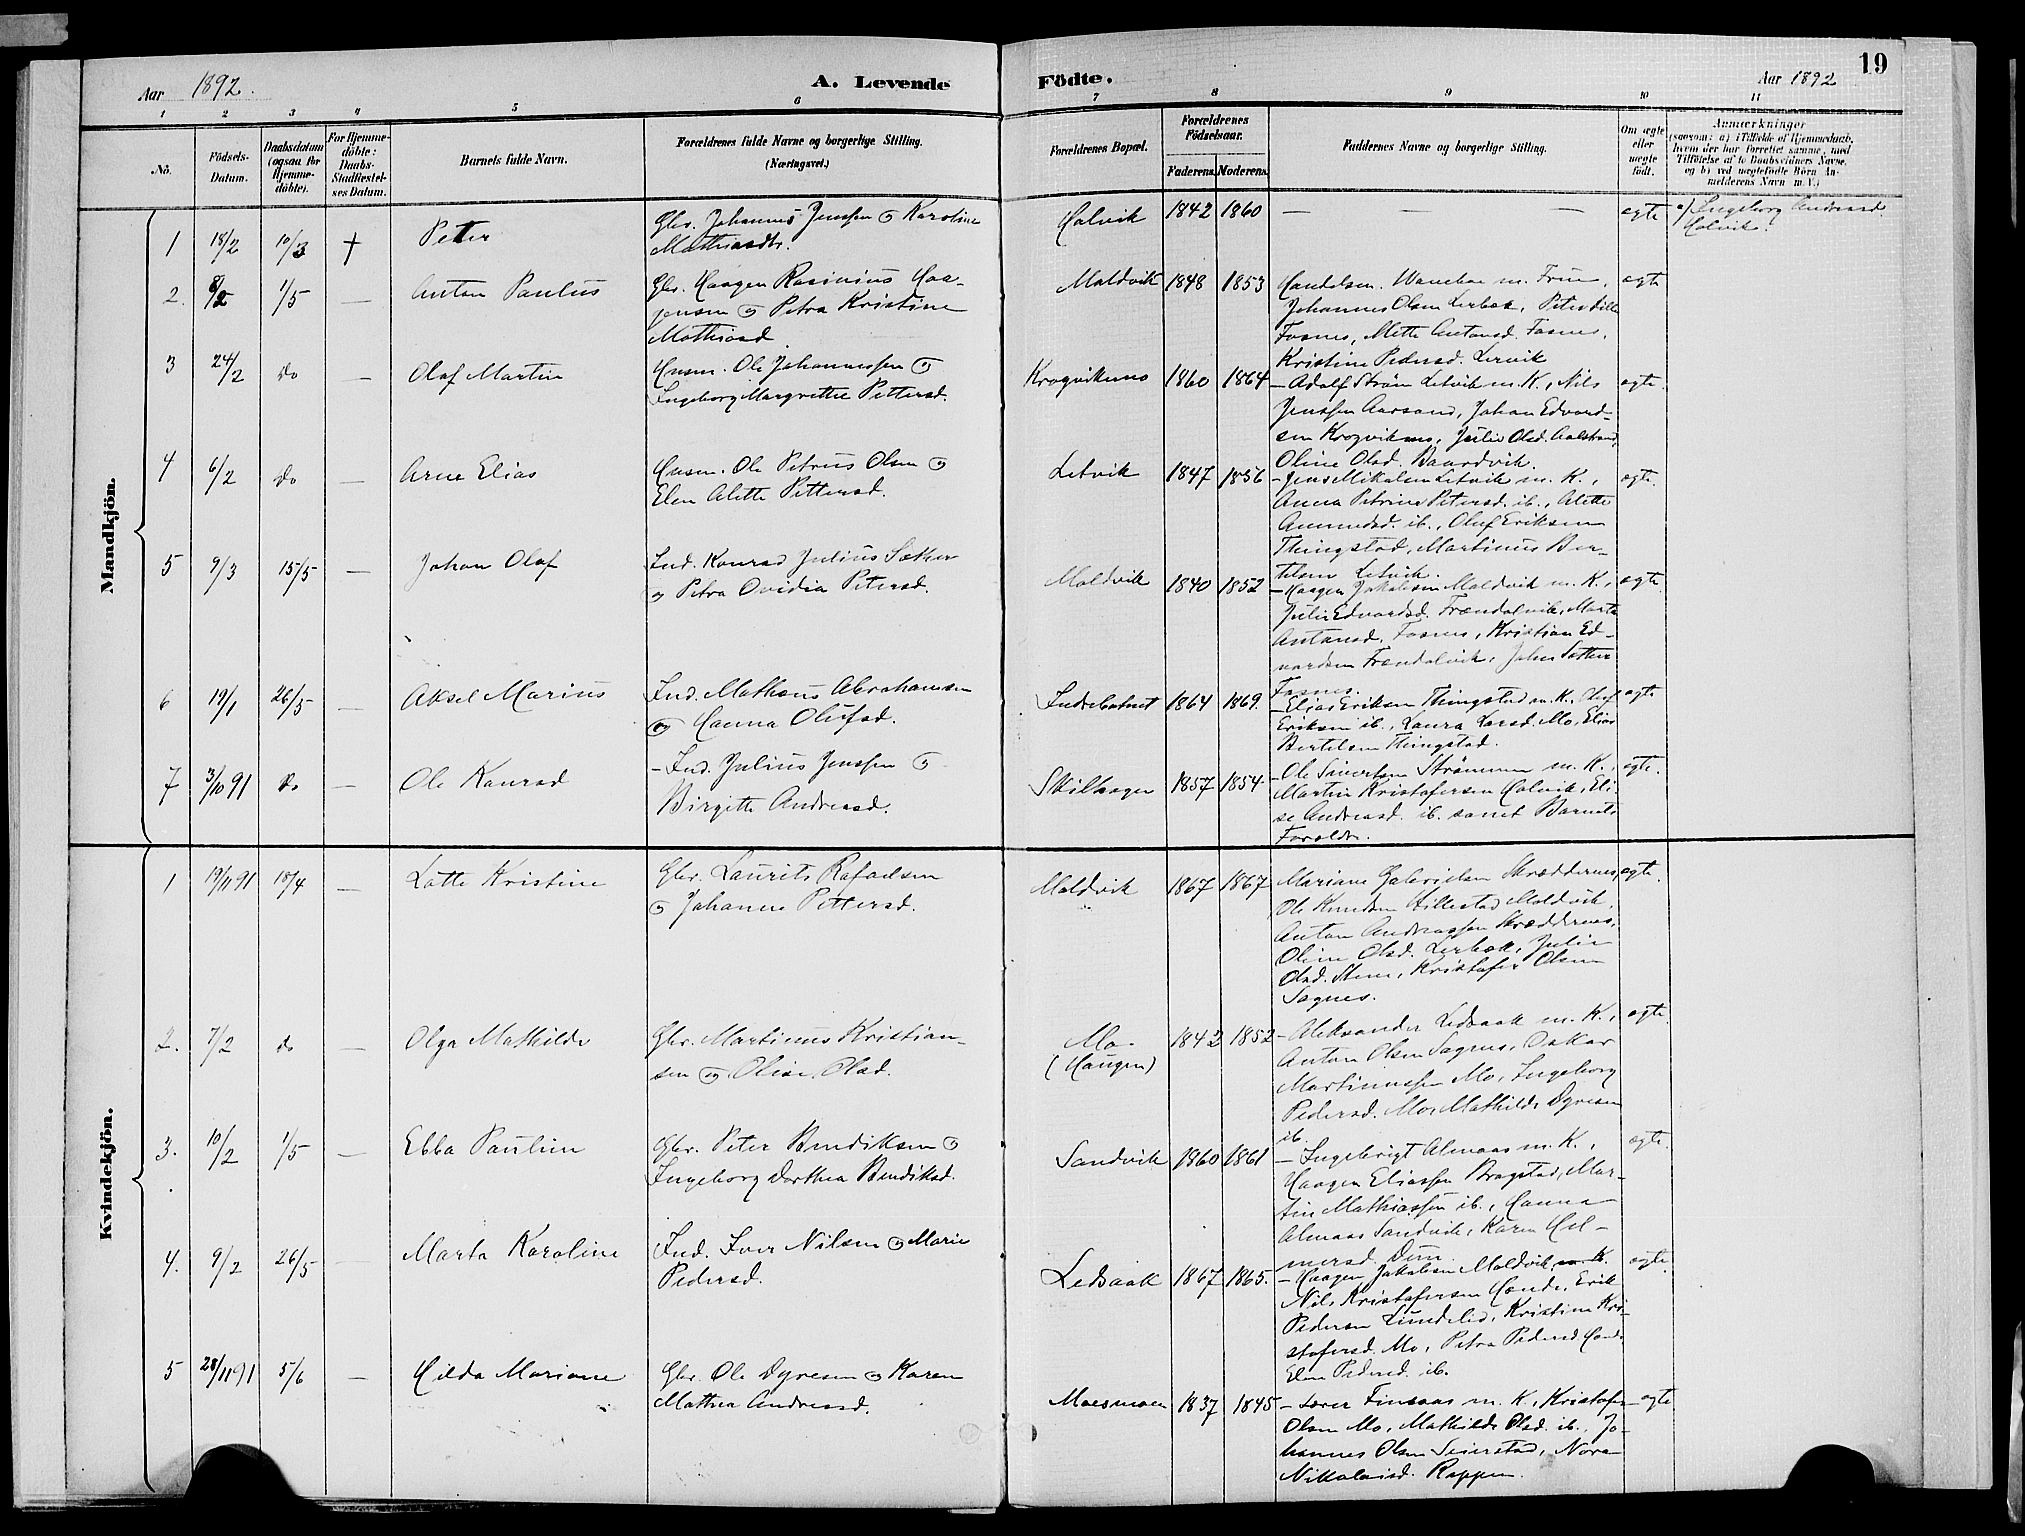 Aar 1892.
A. Levende
Födte.
Aar 1892
19
1 2 3 4 5 6 7 8 9 10 11
No.
Födsels-
Datum.
Daabsdatum
(ogsaa for
Hjemme-
döbte).
For Hjemme-
döbte:
Daabs-
Stadfæstel-
ses Datum.
Barnets fulde Navn.
Forældrenes fulde Navne og borgerlige Stilling.
(Næringsvei.)
Forældrenes Bopæl.
Forældrenes
Födselsaar.
Faderens. Moderens.
Faddernes Navne og borgerlige Stilling.
Om ægte
eller
uægte
født.
Anmærkninger
(saasom: a) i Tilfælde af Hjemmedaab,
hvem der har forrettet samme, med
Tilföielse af to Daabsvidners Navne,
og b) ved uægtefödte Börn An-
melderens Navn m. V.)
Mandkjön.
1 18/2 10/3 † Peter
Gbr. Johannes Jenssen og Karoline
Mathiasdtr.
Calvik 1842 1860 — — — ægte
a) Ingeborg Andreasd
Calvik.
2. 8/2 1/5 — Anton Paulus
Gbr. Haagen Rasinius Haa-
gensen og Petra Kristine
Mathiasd
Moldvik 1848 1853
Handelsm. Wannebo m. Frue,
Johannes Olsen Lerbæk, Peter Lille
Fosnes, Mette Antonsd. Fosnes,
Kristine Pedersd. Lervik
ægte
3 24/2 do — Olaf Martin
Husm. Ole Johannessen og
Ingeborg Margrethe Pettersd.
Krogvikmo 1860 1864
- Adolf Strøm Letvik m. K., Nils
Jenssen Aarsand, Johan Edvard-
sen Krogvikmo, Julie Olsd. Aalstrand,
Oline Olsd. Baardvik.
ægte.
4 6/2 do — Arne Elias
Husm. Ole Petrus Olsen og
Elen Alette Pettersd.
Letvik 1847 1856
- Jens Mikalsen Letvik m. K.,
Anna Petrine Petersd. ib., Alette
Ammundsd. ib., Oluf Eriksen
Thingstad, Martinus Ber-
telsen Letvik.
ægte.
5 9/3 15/5 — Johan Olaf
Ind. Konrad Julius Sæther
og Petra Ovidia Petersd.
Moldvik 1840 1852
- Haagen Jakobsen Moldvik m. K.,
Julie Edvardsd. Frændalvik, Marta
Antonsd. Fosnes, Kristian Ed-
vardsen Frændalvik, John Sæther
Fosnes.
ægte.
6 19/1 26/5 — Aksel Marius
Ind. Mathæus Abrahamsen
og Hanna Olufsd.
Indrebotnet 1864 1869.
- Elias Eriksen Thingstad m. K., Oluf
Eriksen ib., Laura Larsd. Mo, Elias
Bertelsen Thingstad.
ægte
7 3/10 91 do — Ole Konrad
- Ind. Julius Jenssen og
Birgitte Andreasd.
Skilhagen 1857 1854.
- Ole Sivertsen Strømmen m. K.,
Martin Kristofersen Calvik, Eli-
se Andreasd. ib. samt Barnets
Forældre.
ægte.
Kvindekjön.
1 19/11 91 18/4 — Lotte Kristine
Gbr. Laurits Rafaelsen
og Johanne Pettersd.
Moldvik 1867 1867
Mariane Gabrielsen Skræddernes,
Ole Knudsen Hillestad Moldvik,
Anton Andreassen Skræddernes,
Oline Olsd. Lerbæk, Julie
Olsd. Stene, Kristofer Olsen
Sagnes.
ægte.
2. 7/2 do — Olga Mathilde
Gbr. Martinus Kristian-
sen og Oline Olsd.
Mo.
(Haugen) 1842 1852
- Aleksander Ledsaak m. K.,
Anton Olsen Sagnes, Oskar
Martinussen Mo, Ingeborg
Pedersd. Mo, Mathilde Dyresen
ib.
ægte.
3. 10/2 1/5 — Ebba Pauline
Gbr. Peter Bendiksen og
Ingeborg Dorthea Bendiksd.
Sandvik 1860 1861
- Ingebrigt Almaas m. K.,
Haagen Eliassen Bragstad, Mar-
tin Mathiassen ib., Hanna
Almaas Sandvik, Karen Hil-
mersd. Dun.
ægte.
4. 9/2 26/5 — Marta Karoline
Ind. Iver Nilsen og Marie
Pedersd.
Ledsaak 1867 1865.
- Haagen Jakobsen Moldvik, m. K.
Nils Kristofersen Hande, Erik
Pedersen Lundelid, Kristine Kri-
stofersd. Mo, Petra Pedersd. Hande
Elen Pedersd. ib.
ægte.
5 28/11 91 5/6 — Hilda Mariane
Gbr. Ole Dyresen og Karen
Mathea Andreasd.
Moesmoen 1837 1845
- Lærer Finsaas m. K., Kristofer
Olsen Mo, Mathilde Olsd. ib., Jo-
hannes Olsen Seierstad, Nora
Nikolaisd. Rappen.
ægte